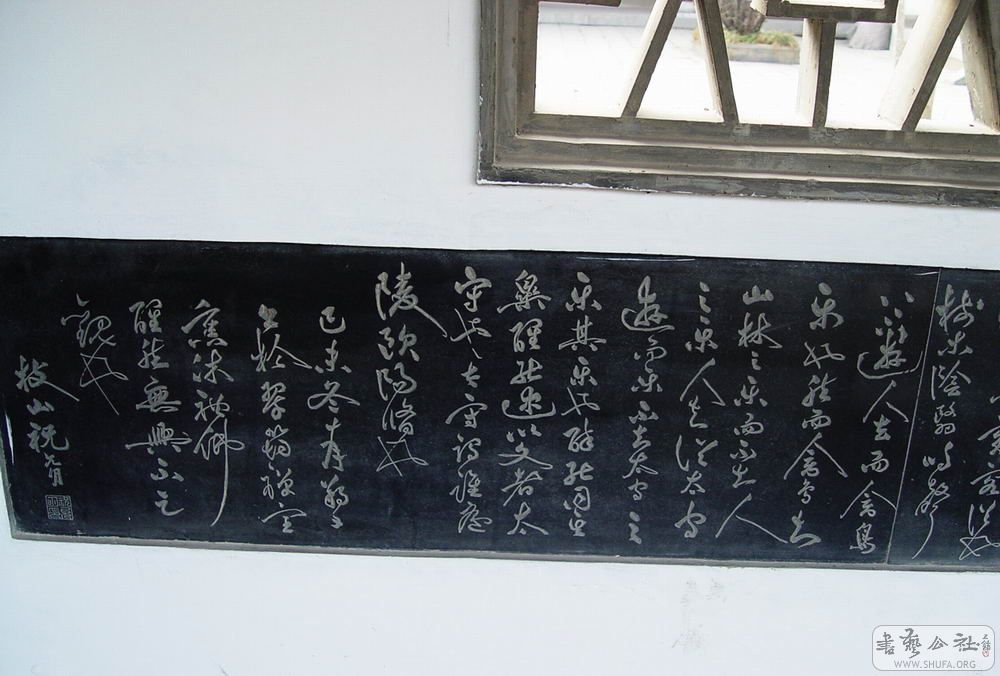 賓客從也
樹林陰翳鳴聲
上下遊人去而禽鳥
樂也然而禽鳥知
山林之樂而不知人
之樂人知從太守
遊而樂不知太守之
樂其樂也醉能同其
樂醒能述以文者太
守也太守謂誰廬
陵歐陽修也
己未冬
於翠筠禪室
沐禮佛
醒無興不足
觀也
枝山祝允明
書藝公社
WWW.SHUFA.ORG